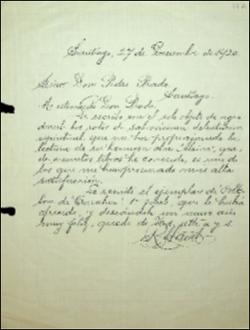 Santiago, 27 de Diciembre de 1920.
Señor Don Pedro Prado.
Santiago.
Mi estimado Don Prado:
Le escribo con el solo objeto de agra-
decerle los ratos de
espiritual que me ha proporcionado la
lectura de su hermosa obra "Alsino", que,
de cuantos libros he conocido, es uno de
los que me han procurado mas alta
satisfacción.
Le remito el ejemplar de
que le había
ofrecido, y deseándole un nuevo año
muy feliz, quedo de Ud. y s.